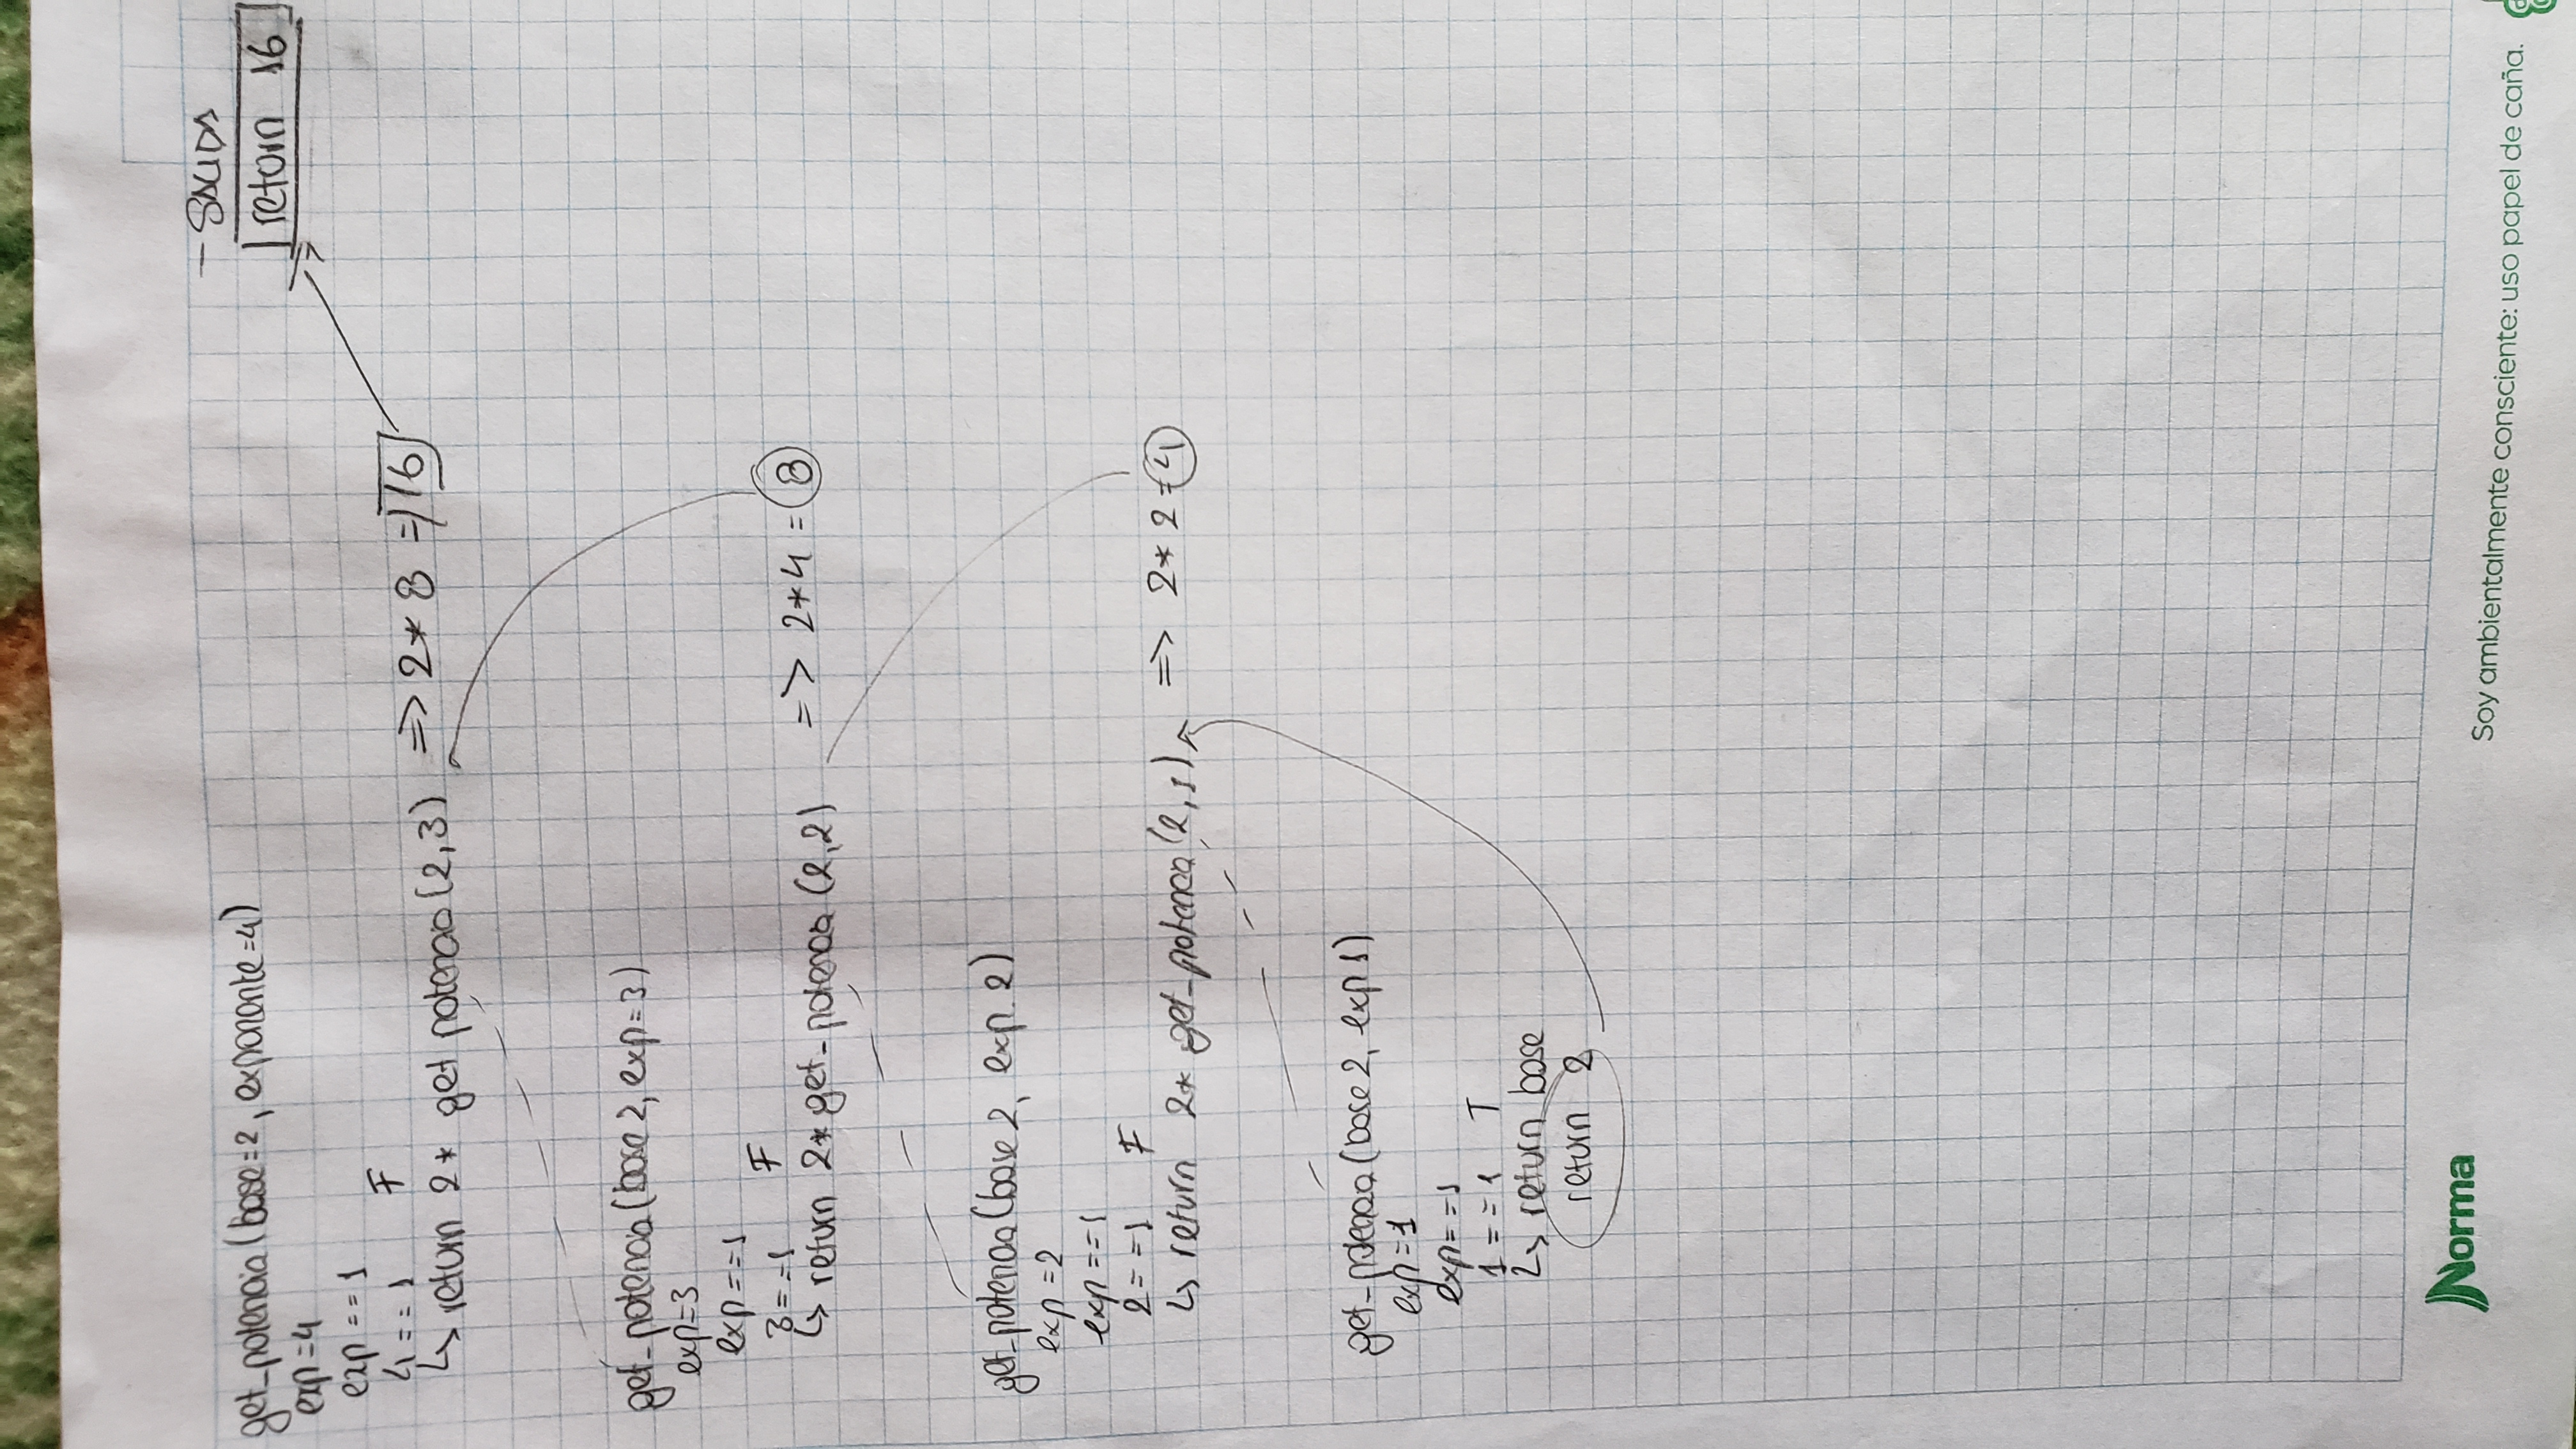 get_potencia (base=2, exponente=4)
exp=4
exp==1
4==1 F
↳ return 2* get potencia (2,3) => 2*8 = 16
- SALIDA
return 16
get_potencia (base 2, exp=3)
exp=3
exp==1
3==1 F
↳ return 2*get-potencia (2,2) => 2*4 = 8
get-potencia (base 2, exp 2)
exp=2
exp==1
2==1 F
↳ return 2* get-potencia (2,1) => 2*2=4
get-potencia (base 2, exp 1)
exp=1
exp==1
1==1 T
↳ return base
return 2
Norma
Soy ambientalmente consciente: uso papel de caña.